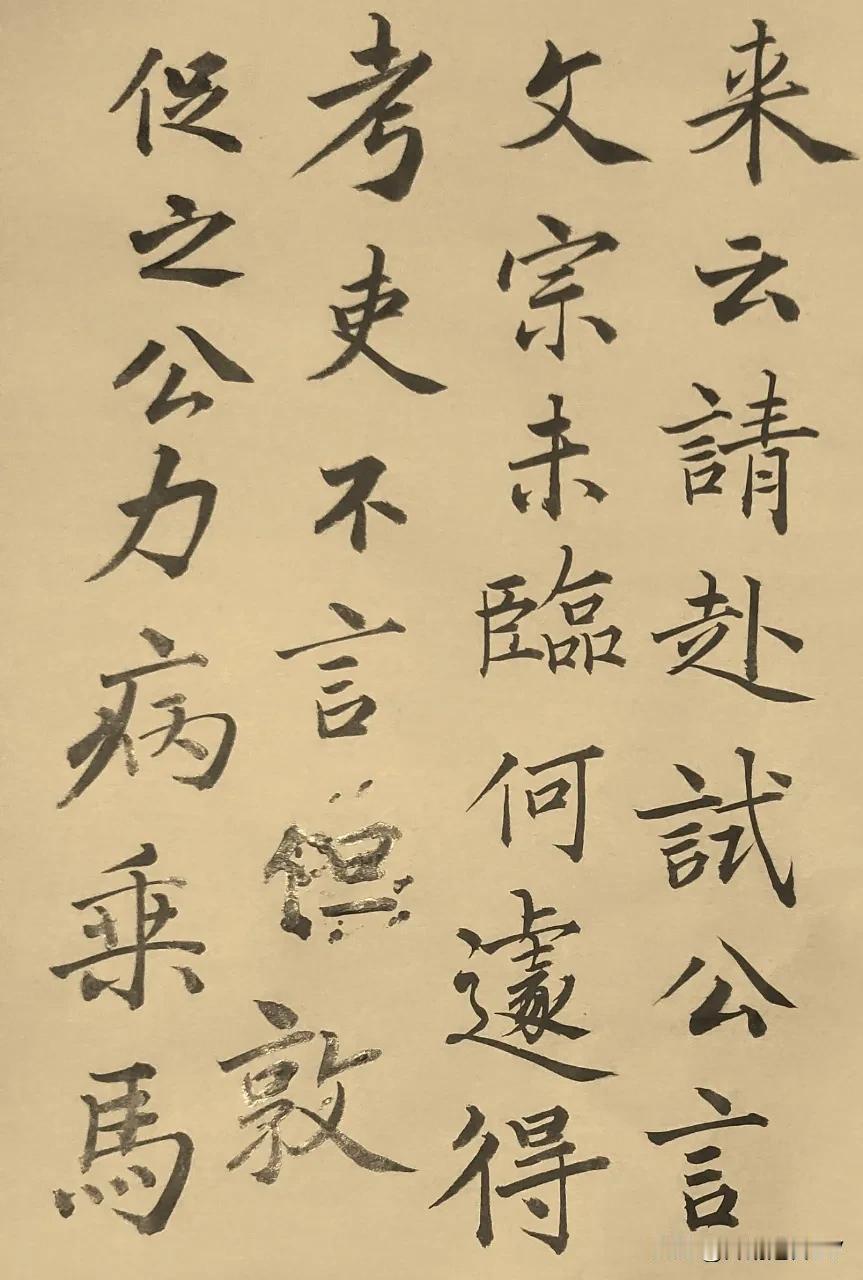 来云請赴試公言
文宗未臨何遽得
考吏不言但敦
促之公力病乗馬